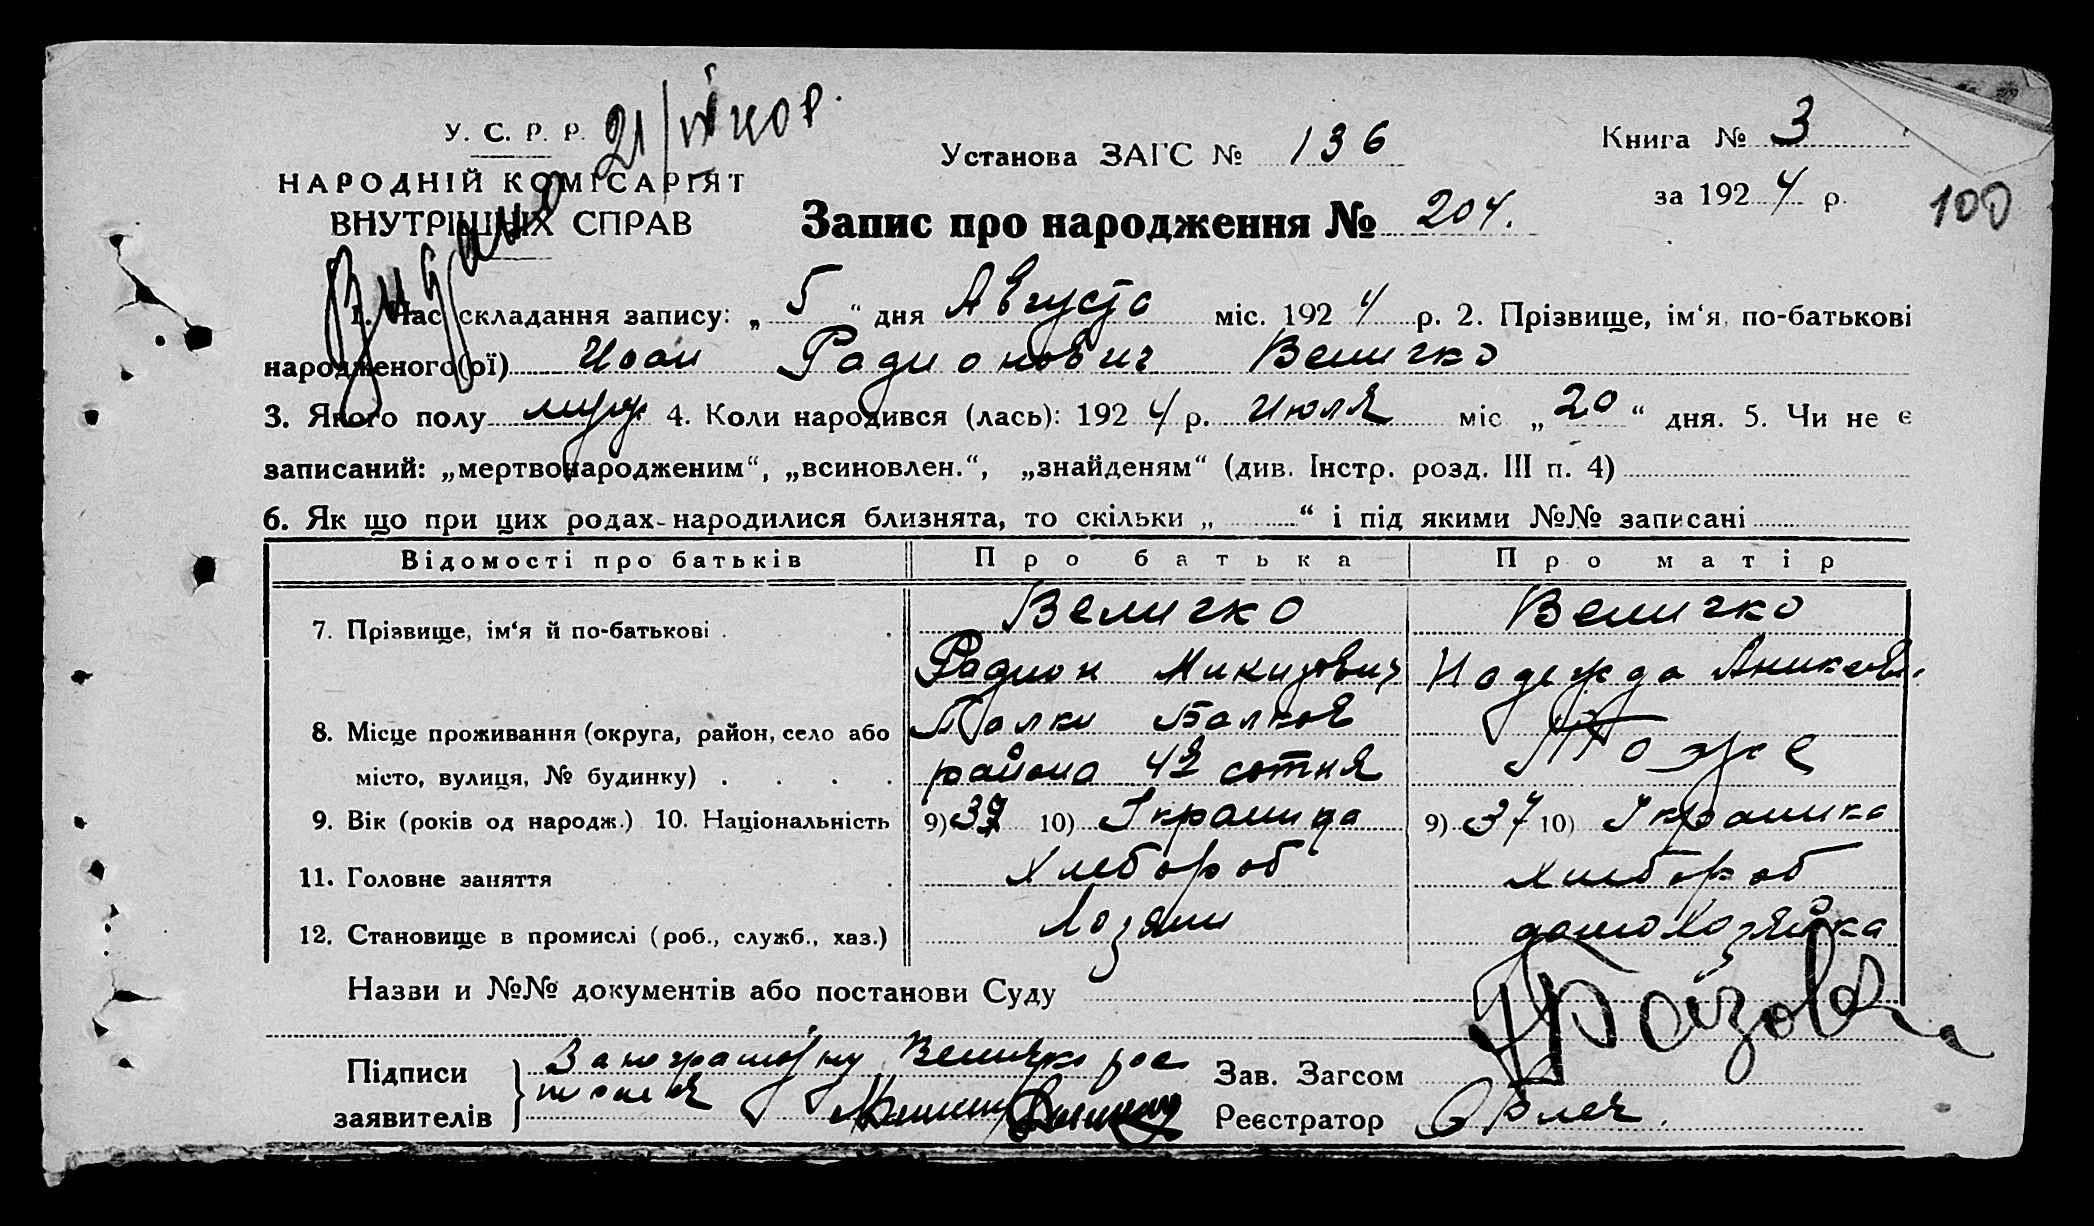 У. С. Р. Р.
НАРОДНІЙ КОМІСАРІЯТ
ВНУТРІШНІХ СПРАВ
Видано 21/VII 40 р.
Установа ЗАГС № 136
Книга № 3
за 1924 р.
100
Запис про народження № 204.
1. Час складання запису: „5“ дня Августа міс. 1924 р. 2. Прізвище, ім‘я, по-батькові
народженого(ої) Иоан Радионович Величко
3. Якого полу муж. 4. Коли народився (лась): 1924 р. Июля міс „20“ дня. 5. Чи не є
записаний: „мертвонародженим“, „всиновлен.“, „знайденям“ (див. Інстр. розд. III п. 4)
6. Як що при цих родах-народилися близнята, то скільки „ “ і під якими №№ записані
Відомості про батьків Про батька Про матір
7. Прізвище, ім‘я й по-батькові . . Величко Величко
Радион Микитович Надежда Аникеев.
8. Місце проживання (округа, район, село або Валки Валков
місто, вулиця, № будинку) . . . . района 42 сотня Тоже
9. Вік (років од народж.) 10. Національність 9) 39 10) Украинца 9) 37 10) Украинка
11. Головне заняття Хлебороб хлебороб
12. Становище в промислі (роб., служб., хаз.) Хозяин домохозяйка
Назви и №№ документів або постанови Суду
Підписи За неграмотну Величко рос
заявителів
Зав. Загсом
Реєстратор